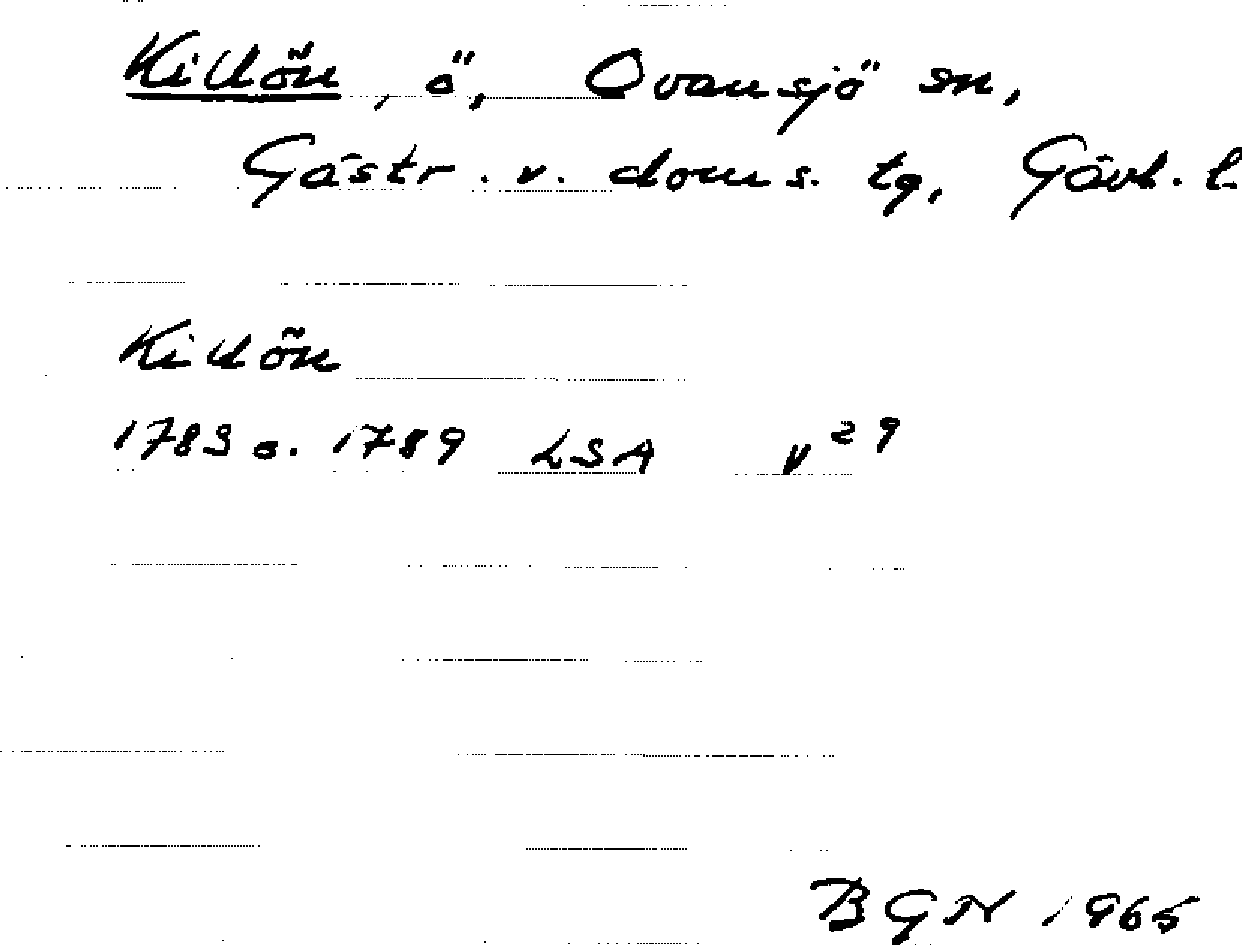 Killön, ö, Ovansjö sn,
Gästr. v. doms. tg, Gävl. l.
Killön
1783 o. 1789 LSA V 29
BGN 1965